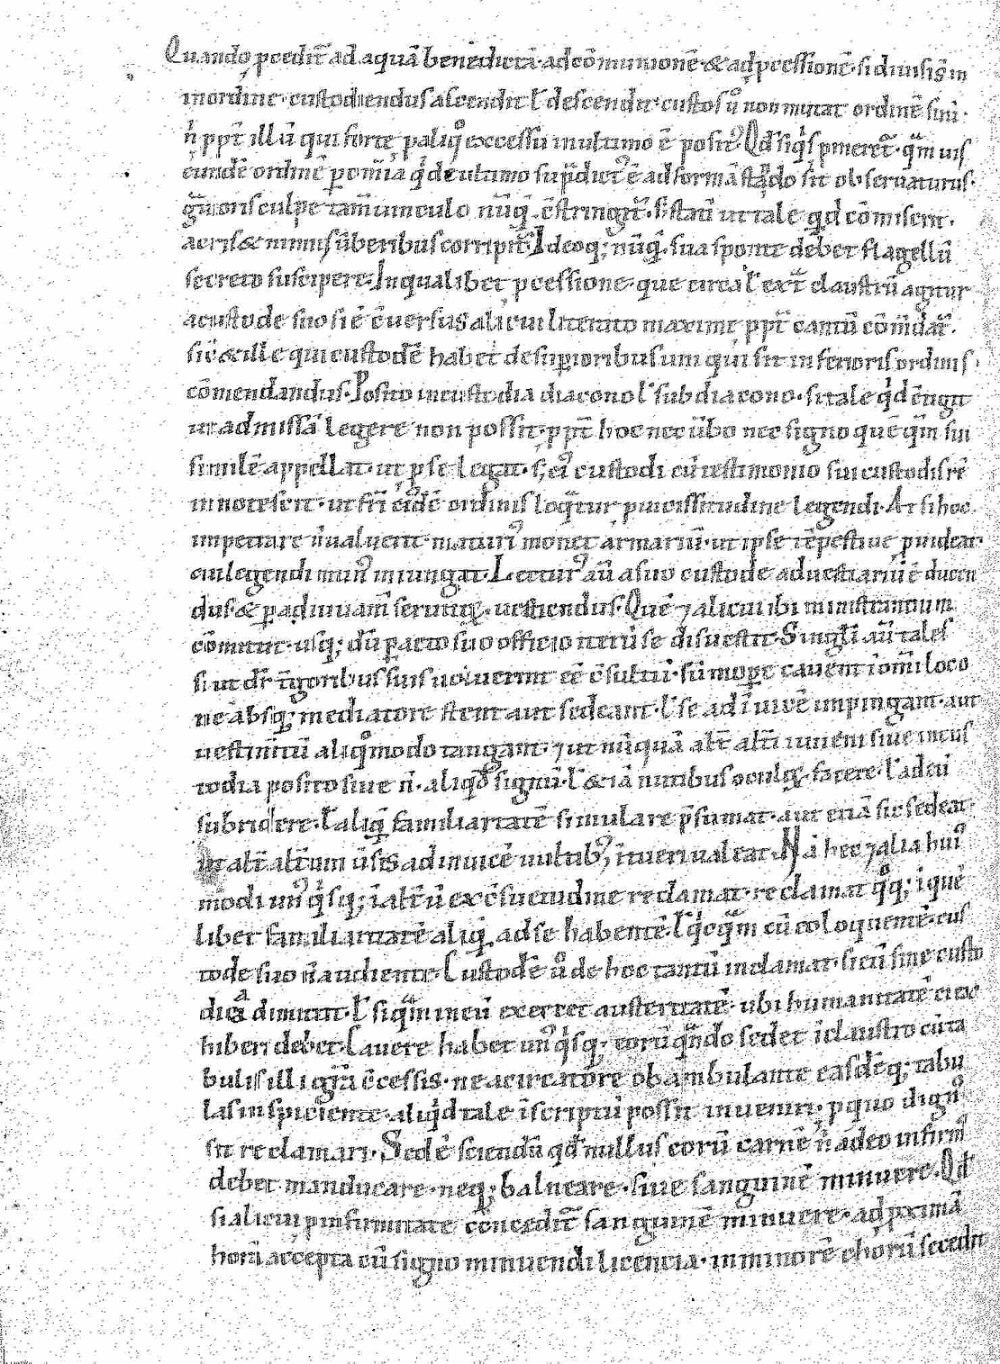 Quando pcedit̄ ad aquā benedictā · ad cōmunionē · & ad pcessionē · si diuisis̄ in
in ordine · custodiendus ascendit l̄ descendit · custos ů non mutat ordinē suū ·
n̄ ppt̄ illū qui forte p aliqͦ excessu in ultimo ē posit⁹ · Qd̄ si
eundē ordinē p om̄ia qd̄ de ultimo sup̄dict⁹ ē ad formā stando sit obseruaturus ·
culpe tam̄ uinculo nūq̄ ut tale qd cōmiserit ·
acris & nimis ūberibus corripit̄ · Ideoq; nūq̄ sua sponte debet flagellū
secreto suscipere · In qualibet pcessione · que circa l̄ ext̄ claustrū agitur
a custode suo alicui litterato maxime ppt̄ cantū cōm̄dat̄ ·
sic̄ & ille qui custodē habet de supioribus uni qui sit inferioris ordinis ·
cōmendandus · Posito in custodia diacono l̄ subdiacono · si tale qd̄
ut ad missā legere non possit · ppt̄ hoc nec ūbo nec signo quē q̄m sui
similē appellat · ut p se legat · s; ei⁹ custodi cū testimonio sui custodis rē
innotescit · ut fr̄i ordinis loq̄tur p uicissitudine legendi · At si hoc
impetrare n̄ ualuerit · maturi⁹ monet armariū · ut ipse puideat ·
cui legendi mun⁹ iniungat · Lectur⁹ aū a suo custode ad uestiariū ē ducen
dus · & p adiuuam̄ uestiendus · Quē ⁊ alicui ibi ministrantium
cōmittit · usq; dū pacto suo officio iterū se disuestit · Singl̄i aū tales
si ut dr̄ rigoribus suis uoluerint eē summope cauent ī om̄i loco
ne absq; mediatore stent aut sedeant · l̄ se ad īuicē impingant · aut
uestim̄tū aliqͦmodo tangant · ⁊ ut nūquā alt̄ alt̄i iuueni siue in cus
todia posito siue n̄ · aliqd̄ signū · l̄ & iā nutibus oculoꝝ · facere · l̄ ad eū
subridere · l̄ aliq̄ familiaritatē simulare p̄sumat · aut etiā sic sedeat ·
ut alt̄ alt̄um ūsis ad inuicē uultib⁹ ītueri ualeat · Nā hec ⁊ alia hui⁹
modi un⁹qⁱsq; ī alt̄ū ex cōsuetudine reclamat · reclamat qͦq; ī quē
libet familiaritatē aliq̄ ad se habentē · cū eo loquentē · cus
tode suo n̄ audiente · Custodē ů de hoc tantū inclamat · si eū sine custo
dia dimittit · l̄ si q̄m in eū exercet austeritatē · ubi humanitatē ei ex
hiberi debet · Cauere habet un⁹qⁱsq; eorū q̄ndo sedet ī claustro cū ta
bulis illi gr̄a cōcessis · ne a circatore obambulante easdēq; tabu
las inspiciente · aliqd̄ tale īscriptū possit inueniri · p quo dign⁹
sit reclamari · Sed ē sciendū qd̄ nullus eorū carnē n̄ adeo infirm⁹
debet manducare · neq; balneare · siue sanguinē minuere · Qd̄
si alicui p infirmitate cōcedit̄ sanguinē minuere · ad pximā
horā accepta cū signo minuendi licencia · in minorē chorū secedit